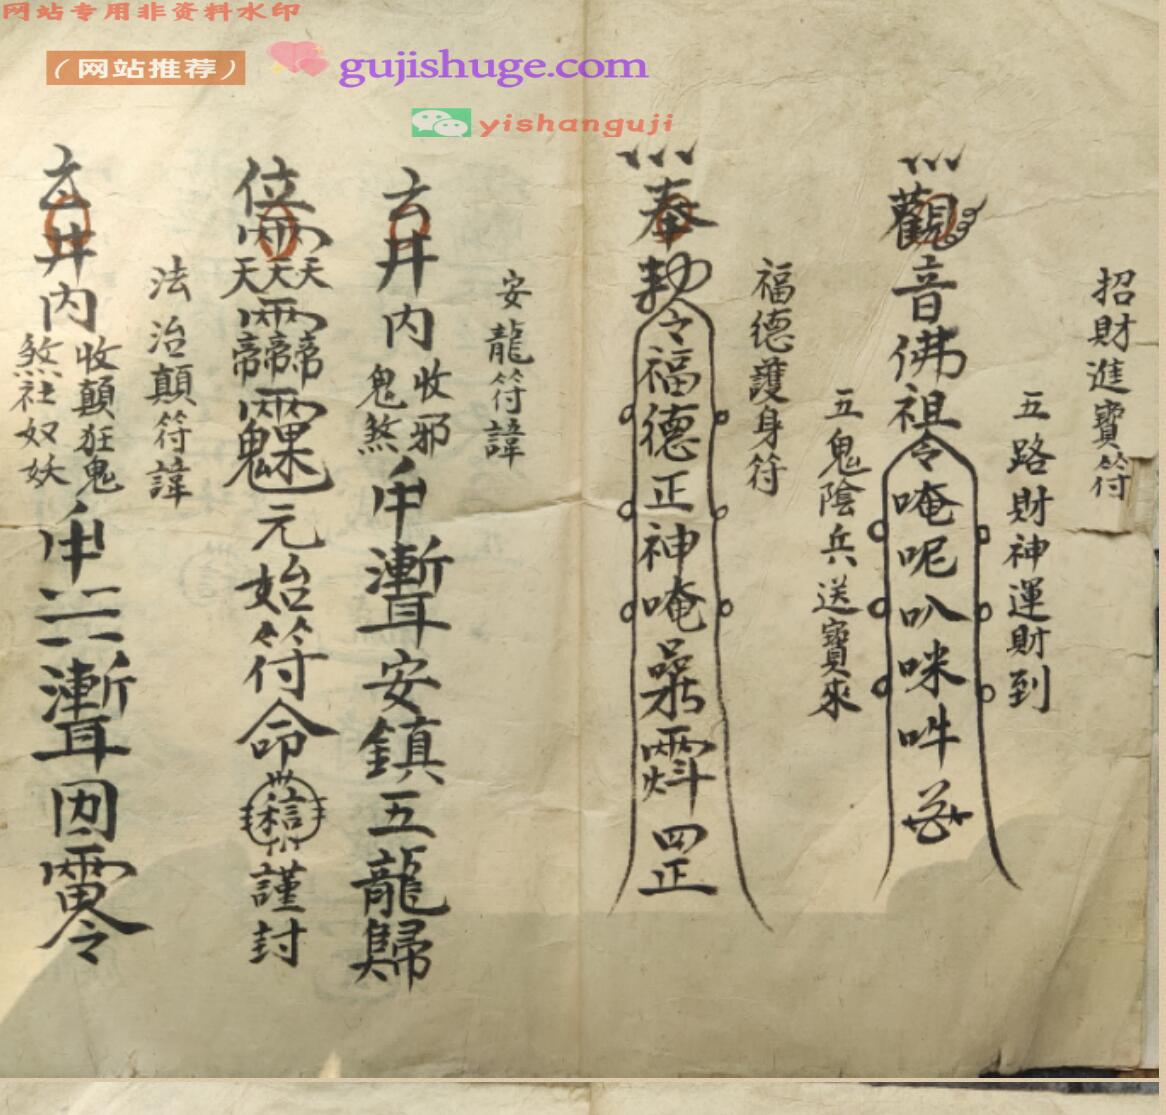 网站专用非资料水印
(网站推荐)
gujishuge.com
yishanguji
招財進寶符
五路財神運財到
觀音佛祖令唵呢叭咪吽
五鬼陰兵送寶來
福德護身符
奉勅令福德正神唵 罡
安龍符諱
玄井内
收邪
鬼煞
安鎮五龍歸
元始符命
謹封
法治顛符諱
玄井内
收顛狂鬼
煞社奴妖